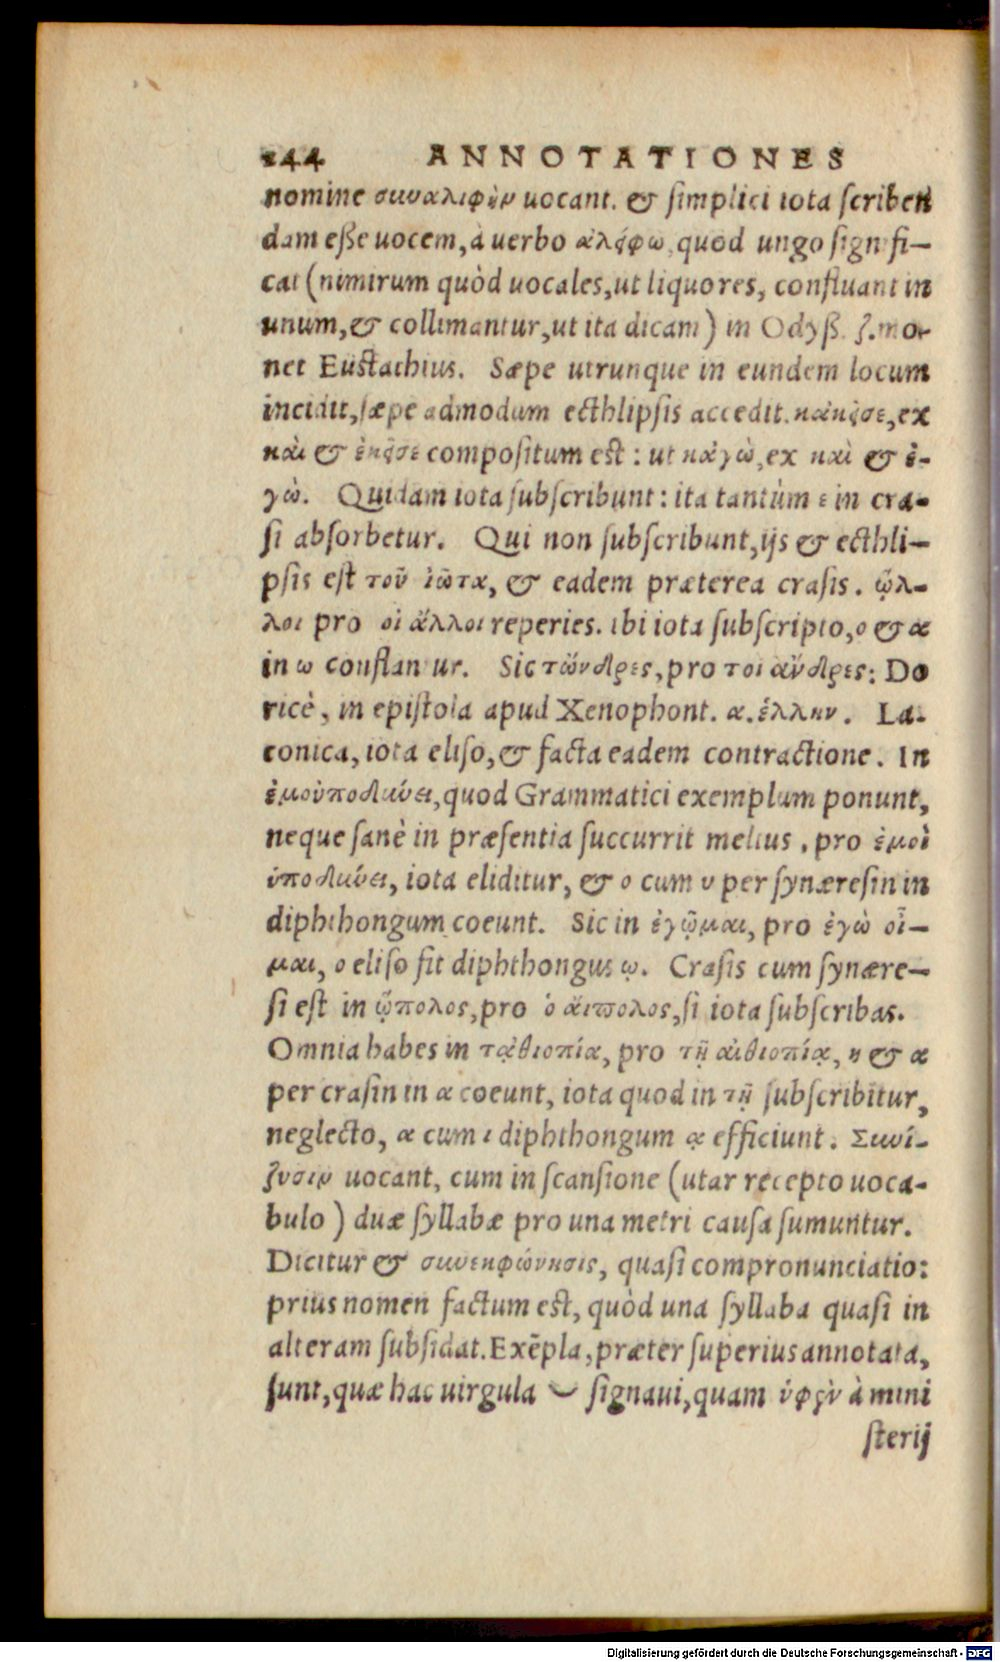 244 ANNOTATIONES
nomine συναλιφὴν uocant. & ſimplici iota ſcriben
dam eſſe uocem, à uerbo ἀλείφω, quod ungo ſignifi—
cat (nimirum quòd uocales, ut liquores, confluant in
unum, & collimantur, ut ita dicam) in Odyß. ζ. mo-
net Euſtathius. Sæpe utrunque in eundem locum
incidit, ſæpe admodum ecthlipſis accedit. κἀκεῖσε, ex
καὶ & ἐκεῖσε compoſitum eſt: ut κἀγὼ, ex καὶ & ἐ-
γώ. Quidam iota ſubſcribunt: ita tantùm ε in cra-
ſi abſorbetur. Qui non ſubſcribunt, ijs & ecthli—
pſis eſt τοῦ ἰῶτα, & eadem præterea craſis. ᾦλ-
λοι pro οἱ ἄλλοι reperies. ibi iota ſubſcripto, ο & α
in ω conflantur. Sic τὤνδρες, pro τοι ἄνδρες: Do
ricè, in epiſtola apud Xenophont. α. ἑλλην. La-
conica, iota eliſo, & facta eadem contractione. In
ἐμοὐποδύνει, quod Grammatici exemplum ponunt,
neque ſanè in præſentia ſuccurrit melius, pro ἐμοὶ
ὑποδύνει, iota eliditur, & ο cum υ per ſynæreſin in
diphthongum coeunt. Sic in ἐγᾦμαι, pro ἐγὼ οἶ—
μαι, ο eliſo fit diphthongus ῳ. Craſis cum ſynære—
ſi eſt in ᾥπολος, pro ὁ αἴπολος, ſi iota ſubſcribas.
Omnia habes in τᾀθιοπίᾳ, pro τῇ αἰθιοπίᾳ, η & α
per craſin in α coeunt, iota quod in τῇ ſubſcribitur,
neglecto, α cum ι diphthongum ᾳ efficiunt. Συνί-
ζησιν uocant, cum in ſcanſione (utar recepto uoca-
bulo) duæ ſyllabæ pro una metri cauſa ſumuntur.
Dicitur & συνεκφώνησις, quaſi compronunciatio:
prius nomen factum eſt, quòd una ſyllaba quaſi in
alteram ſubſidat. Exẽpla, præter ſuperius annotata,
ſunt, quæ hac uirgula ‿ ſignaui, quam ὑφὲν à mini
ſterij
Digitalisierung gefördert durch die Deutsche Forschungsgemeinschaft - DFG